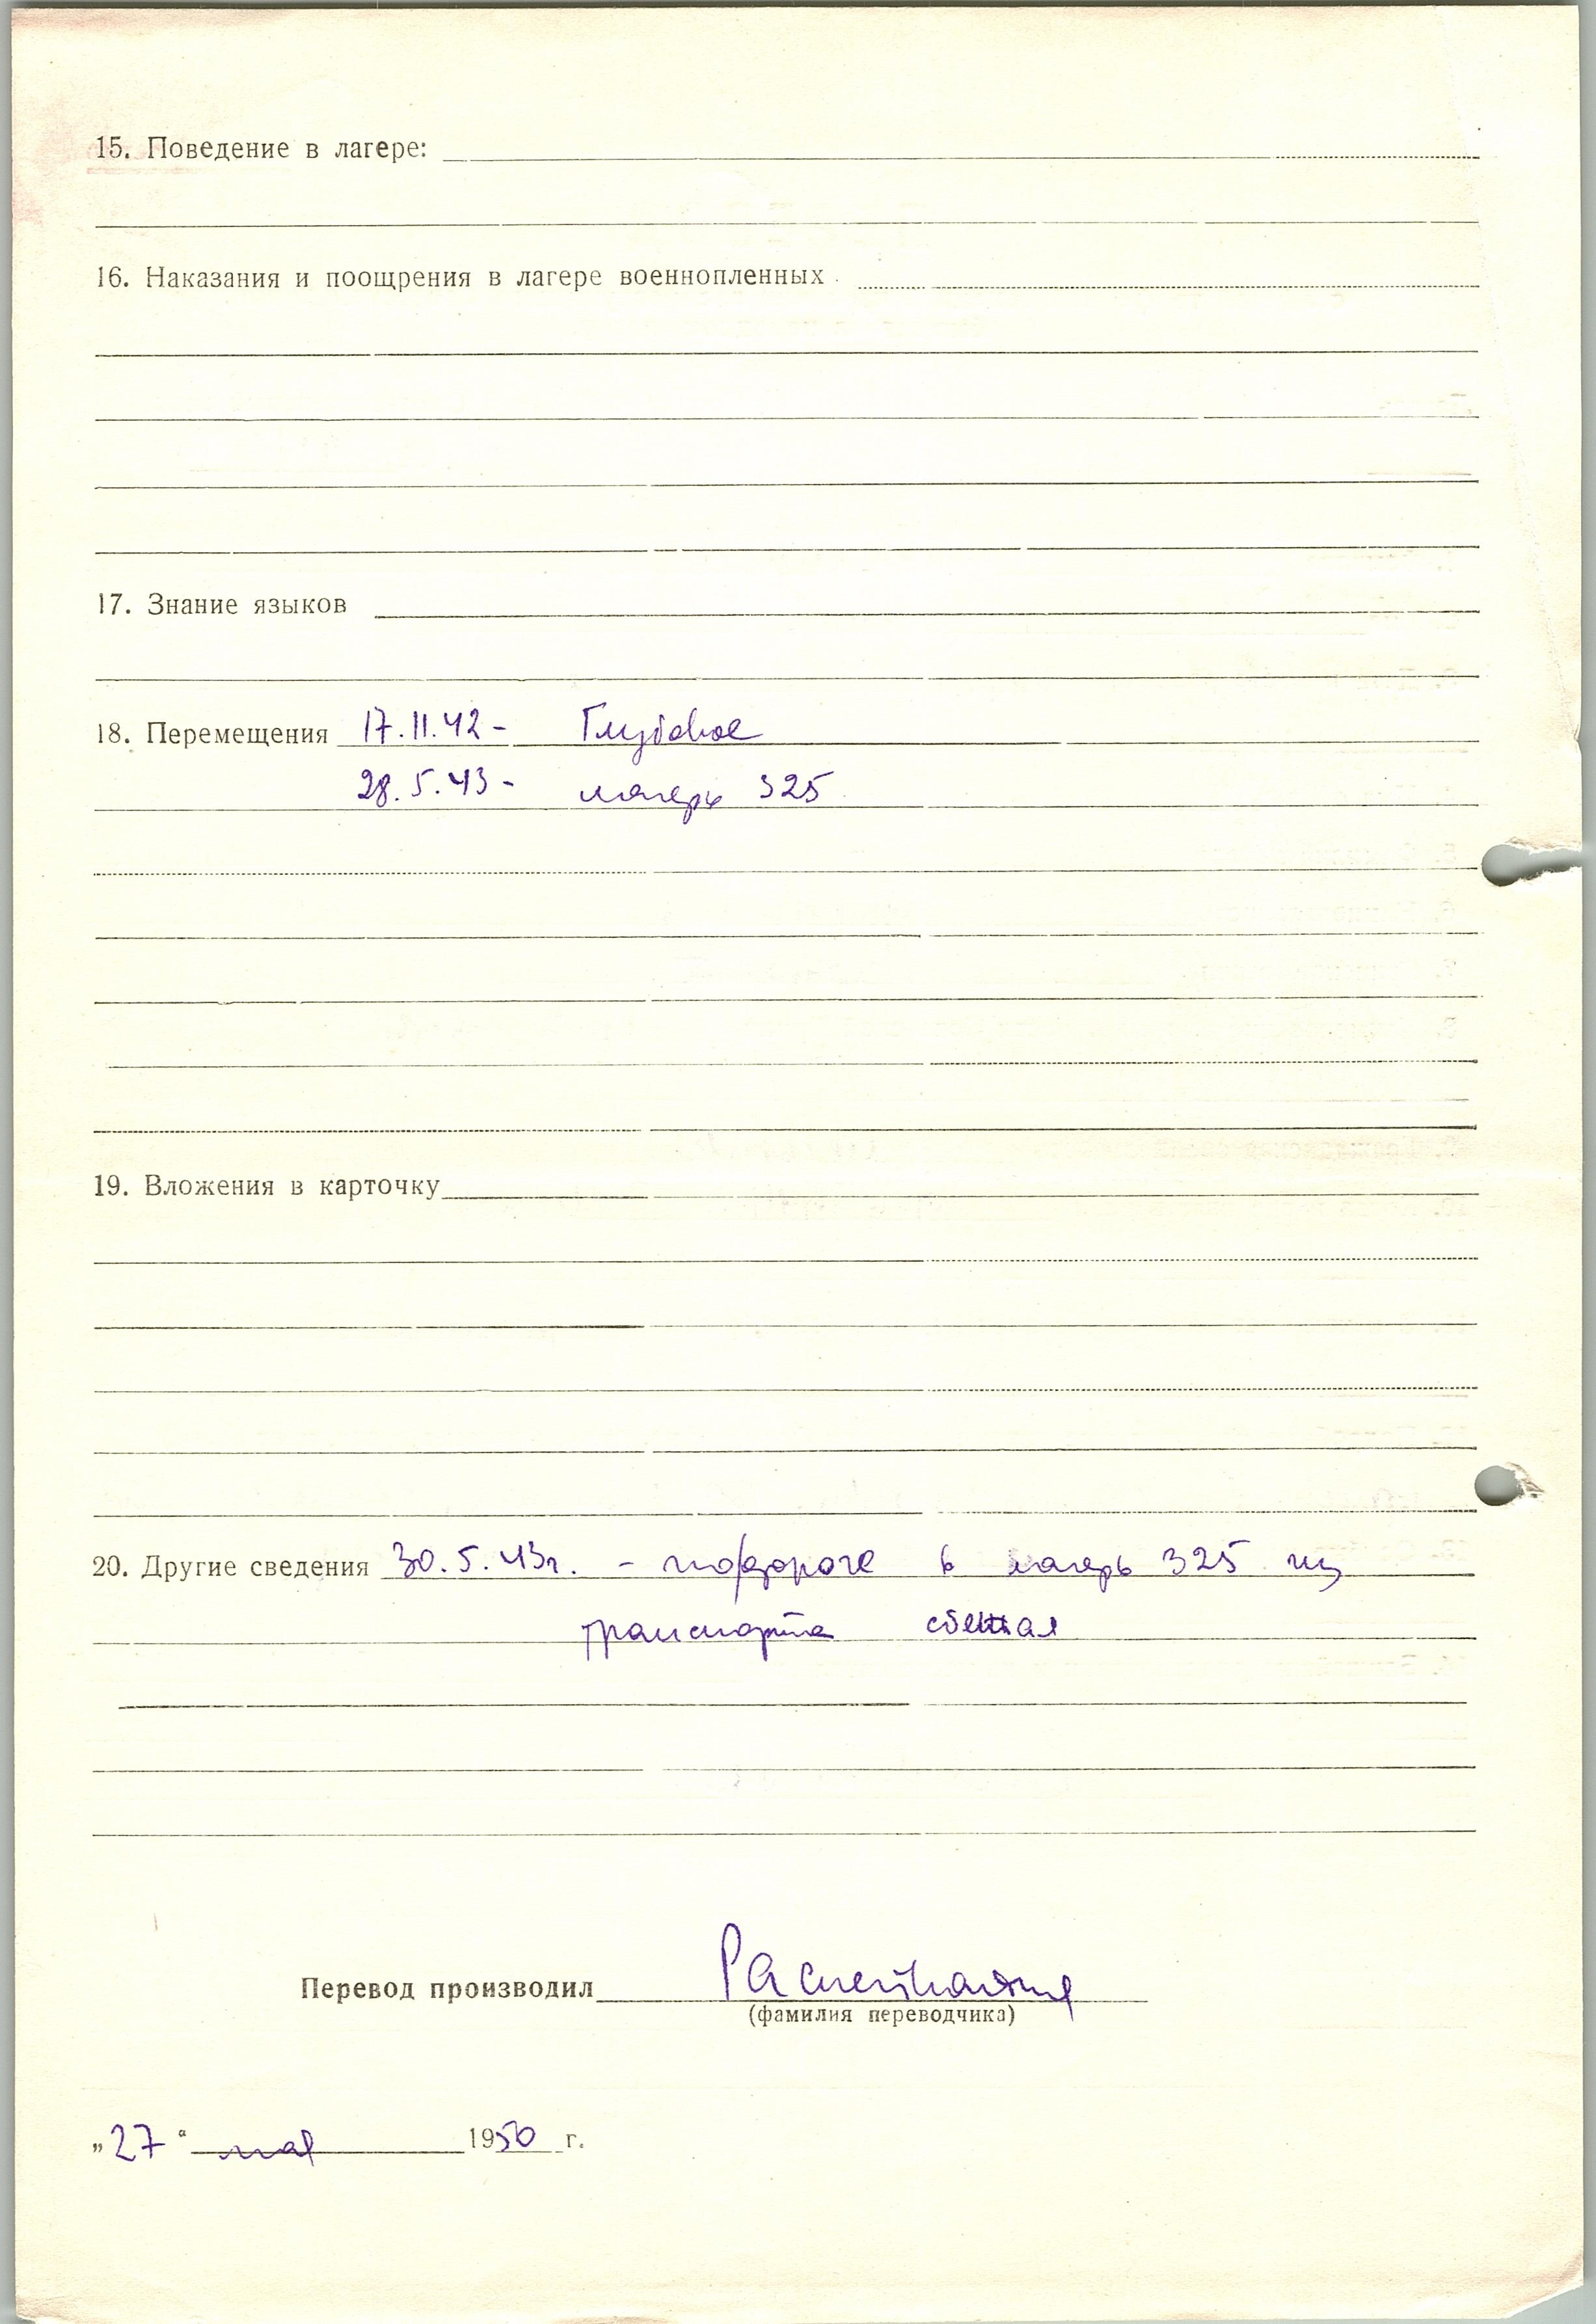 15. Поведение в лагере:
16. Наказания и поощрения в лагере военнопленных
17. Знание языков
18. Перемещения 17.11.42 - Глубокое
28.5.43 - лагерь 325
19. Вложения в карточку
20. Другие сведения 30.5.43г. - по дороге в лагерь 325 из
транспорта сбежал
Перевод производил
(фамилия переводчика)
„27“ мая 1950 г.